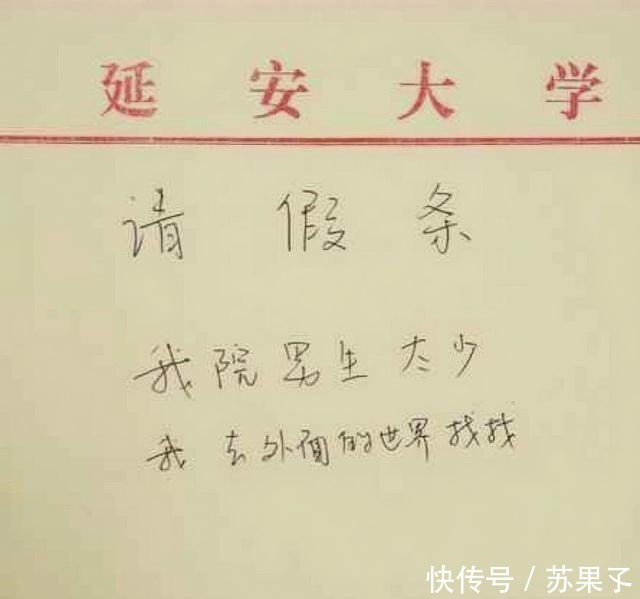 延安大学
请假条
我院男生太少
我去外面的世界找找
快传号/苏果子